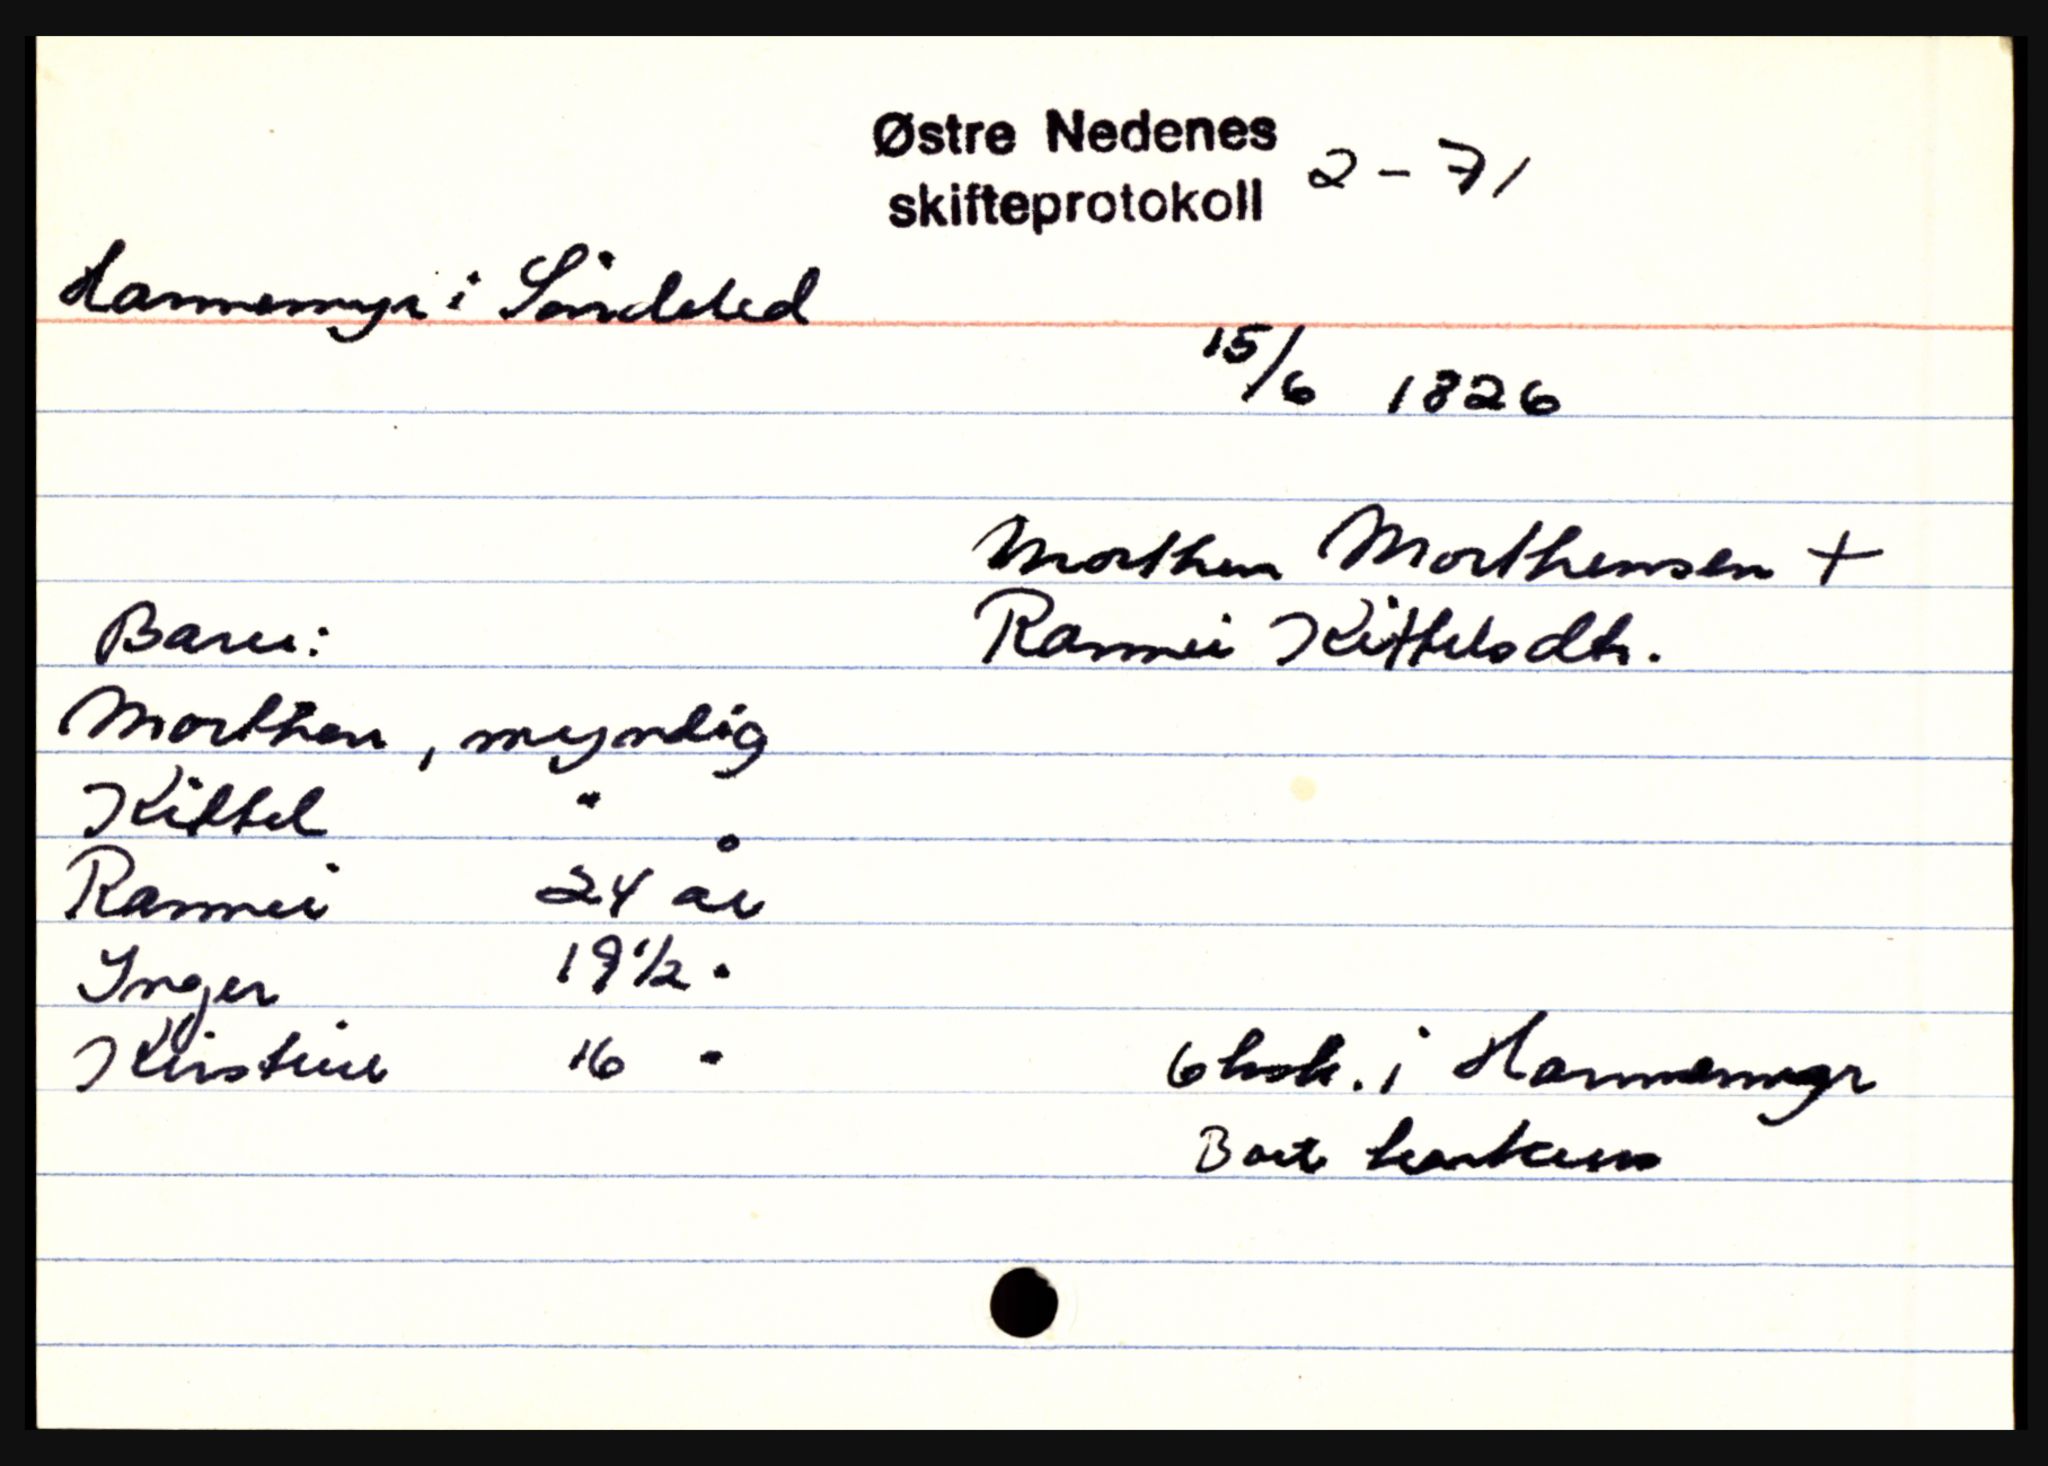 Østre Nedenes
skifteprotokoll 2-71
Hammemyr i Søndeled
15/6 1826
Morthen Morthensen +
Ranmei Kittelsdtr.
Barn:
Morthen, myndig
Kittel "
Ranmei 24 år
Inger 19 1/2 "
Kirstine 16 "
6 hsk. i Hammemyr
Bort